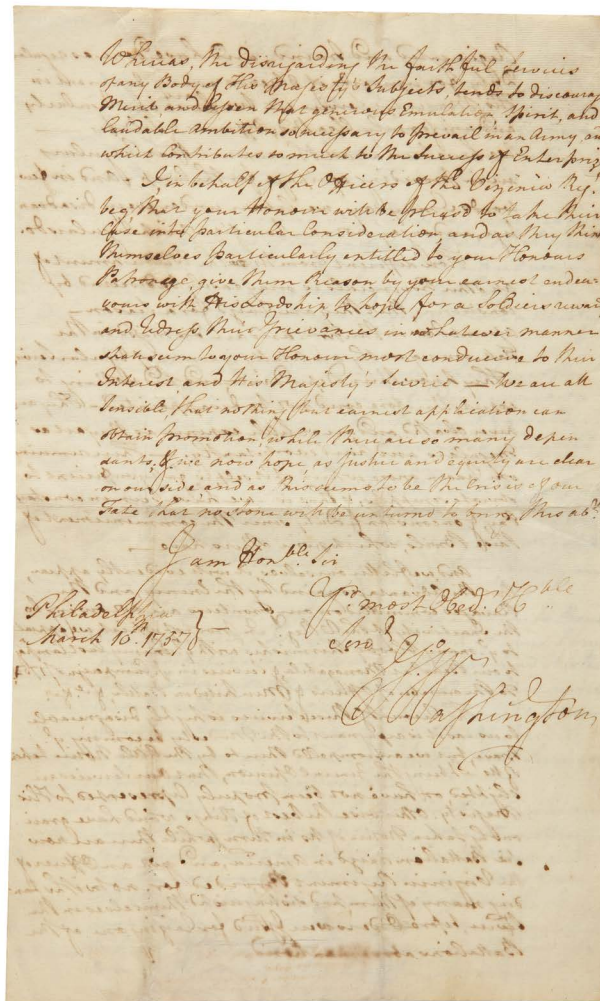 Whereas, the disregarding the faithful services
of any Body of His Majesty's Subjects, tends to discourage
Merit and lessen that generous Emulation, Spirit, and
laudable Ambition so necessary to prevail in an Army and
which Contributes so much to the Success of Enterprize
I, in behalf of the Officers of the Virginia Reg.
beg that your Honour will be pleas'd to take their
Case into particular Consideration, and as they think
themselves particularly entitled to your Honours
Patronage, give them Reason by your earnest endea-
vours with His Lordship, to hope for a Soldiers reward
and redress their Grievances in whatever manner
shall seem to your Honour most conducive to their
Interest and His Majesty's Service — We are all
sensible, that nothing but earnest application can
obtain promotion, while there are so many depen
dants, & we now hope, as Justice and equity are clear
on our side and as this seems to be the Crisis of our
Fate that no stone will be unturnd to this abt
I am Honble. Sir
Yr. most Obedt. Hble
Servt
Philadelphia
March 10th. 1757
Go: Washington